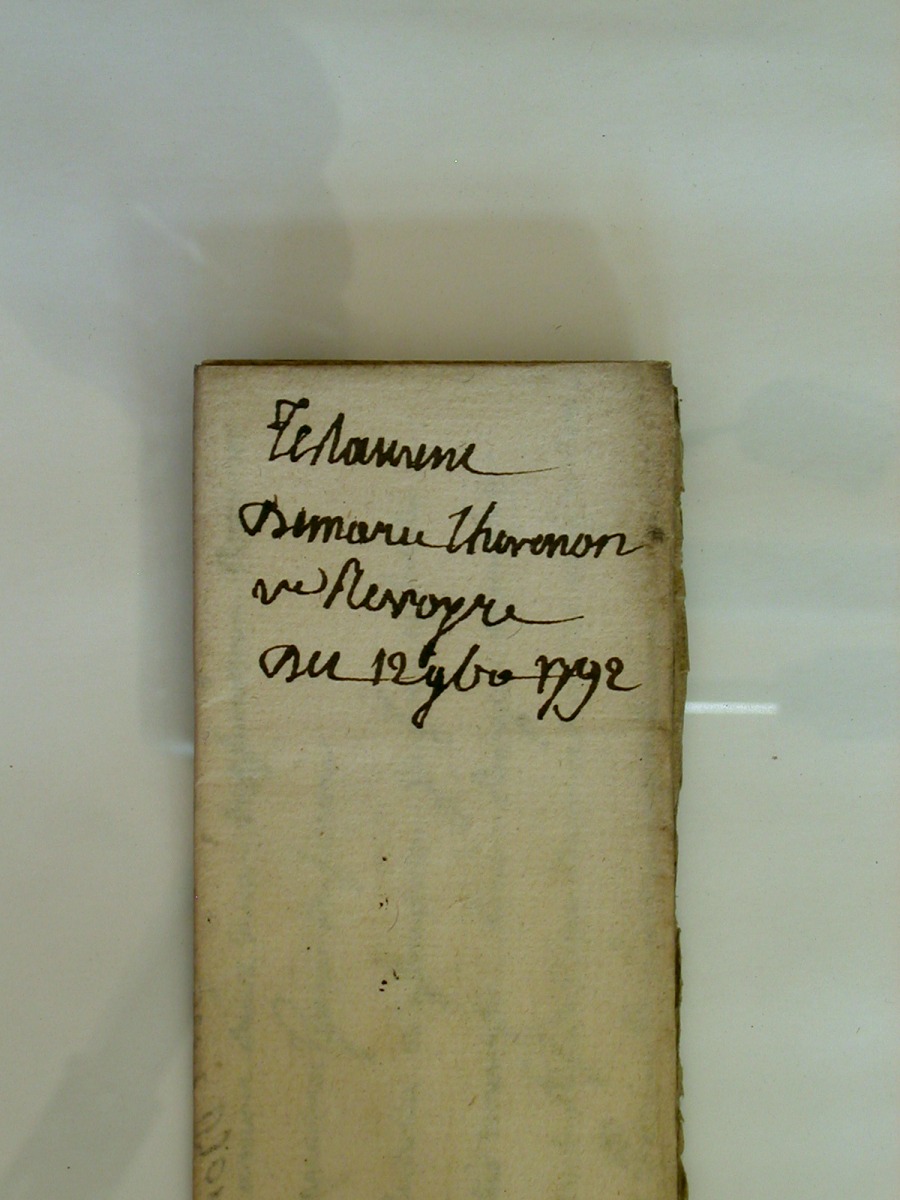 Testament
De marie thevenon
ve Revoyre
Du 12 9bre 1792